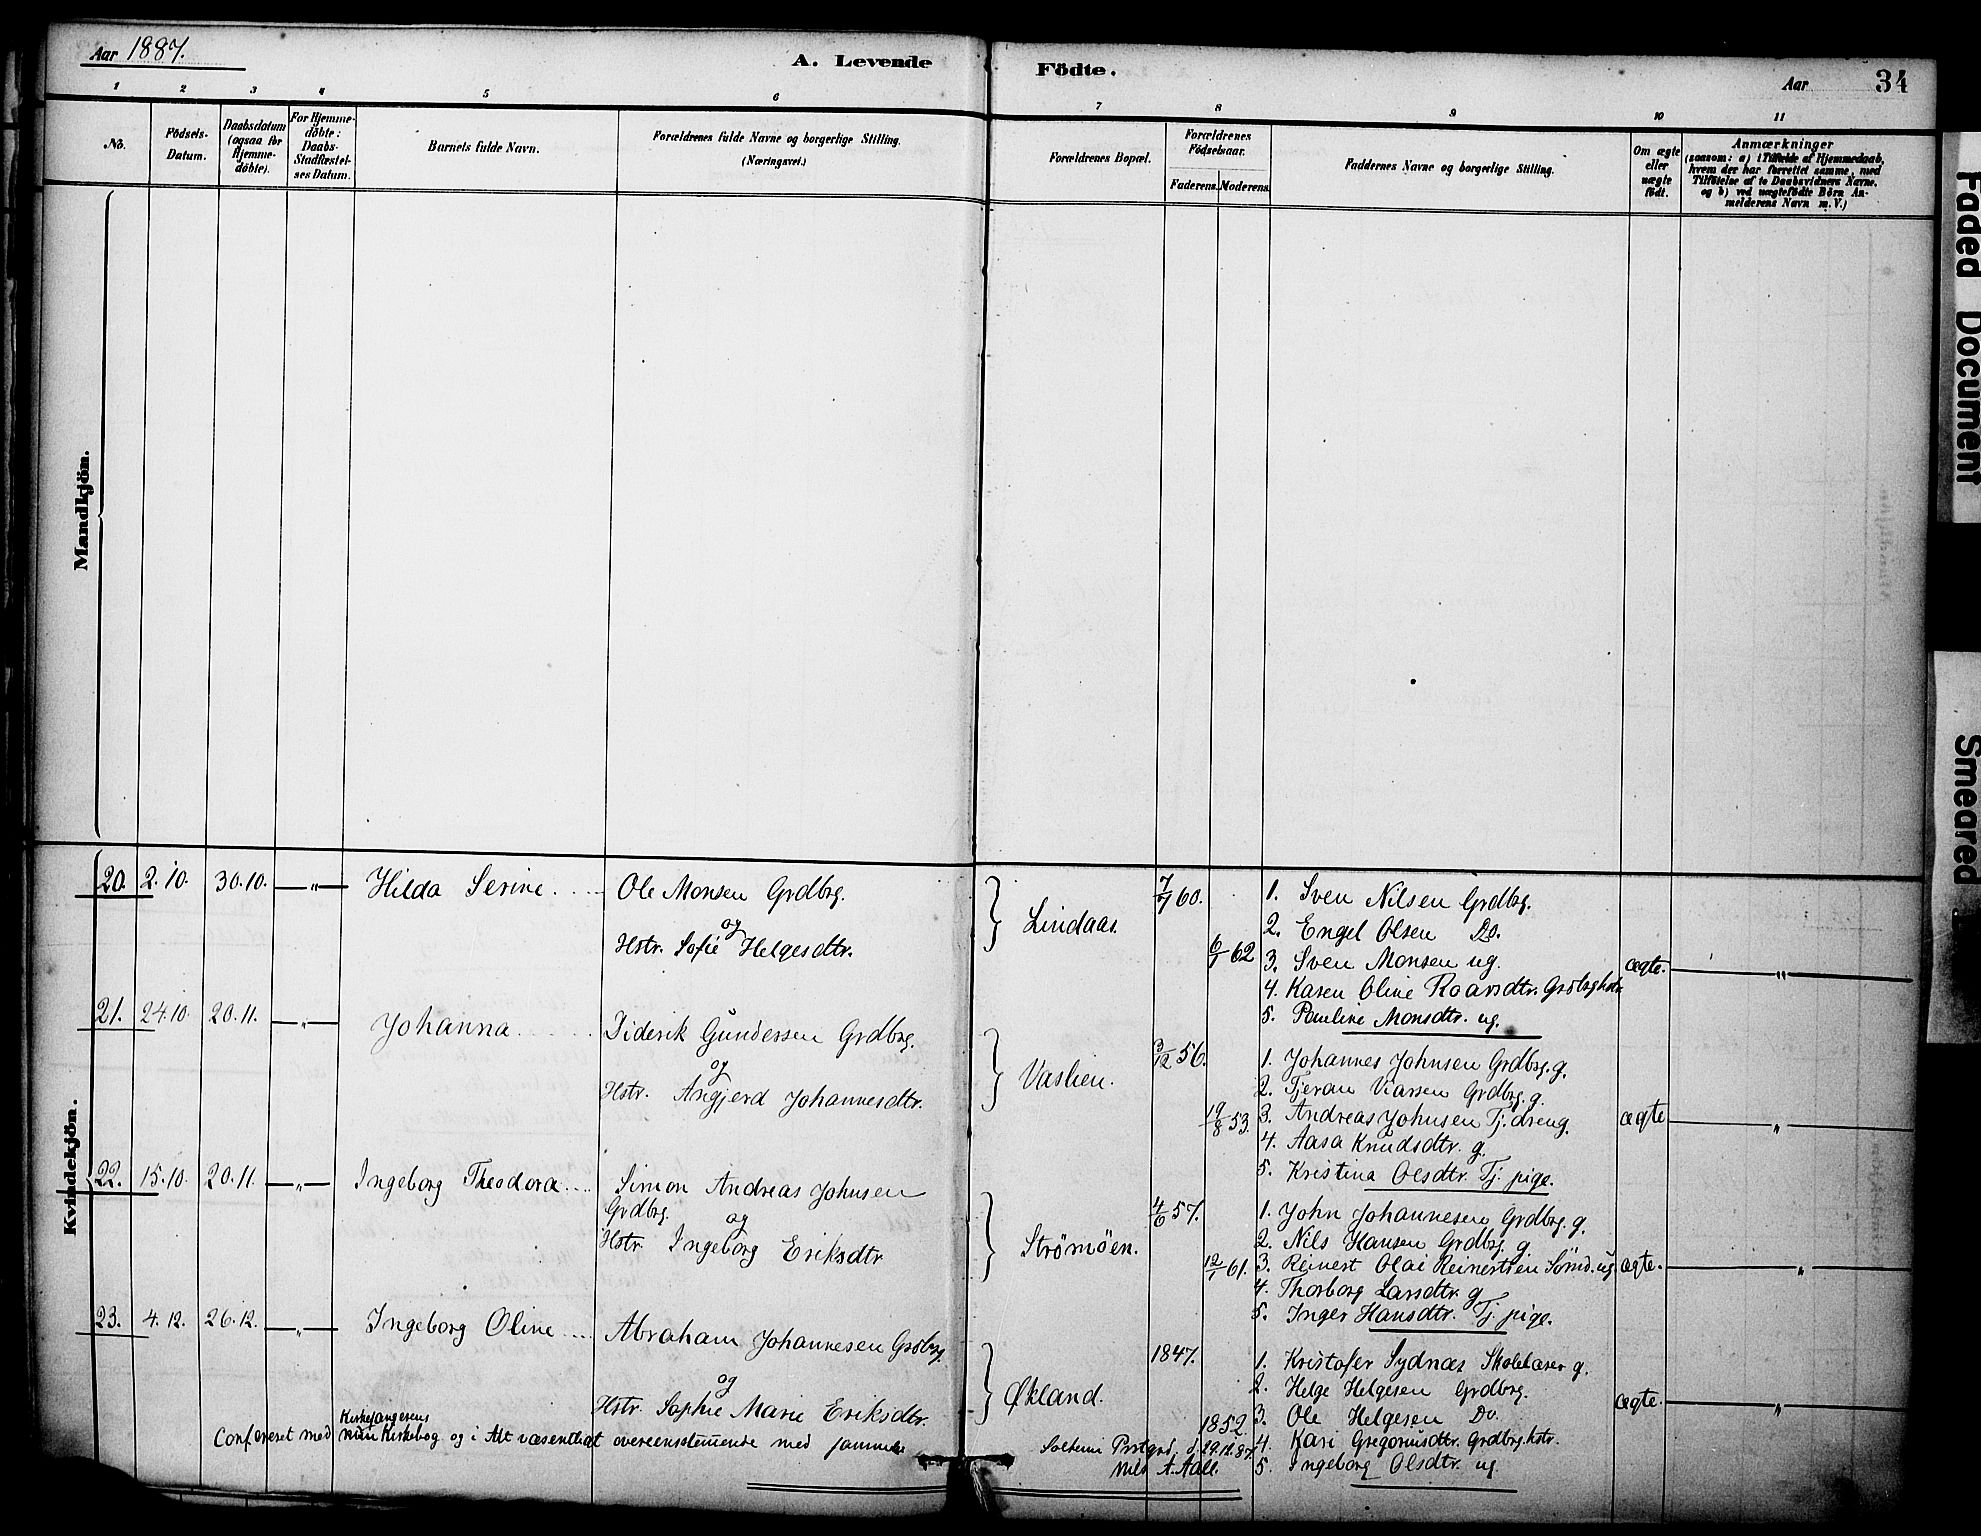 Aar 1887.
A. Levende Födte.
Aar
34
1 2 3 4 5 6 7 8 9 10 11
No.
Födsels-Datum.
Daabsdatum (ogsaa for Hjemme-döbte).
For Hjemme-döbte: Daabs-Stadfæstel-ses Datum.
Barnets fulde Navn.
Forældrenes fulde Navne og borgerlige Stilling.
(Næringsvei.)
Forældrenes Bopæl.
Forældrenes Födselsaar.
Faderens. Moderens.
Faddernes Navne og borgerlige Stilling.
Om ægte eller uægte födt.
Anmærkninger
(saasom: a) i Tilfælde af Hjemmedaab,
hvem der har forrettet samme, med
Tilföielse af to Daabsvidners Navne,
og b) ved uægtefödte Börn An-
melderens Navn m. V.)
Mandkjön.
Kvindekjön.
20. 2.10. 30.10. — „ — Hilda Serine. Ole Monsen Grdbrg.
og
Hstr. Sofie Helgesdtr.
Lindaas.
7/7 60.
6/1 62
1. Sven Nilsen Grdbrg.
2. Engel Olsen Do.
3. Sven Monsen ug.
4. Karen Oline Roarsdtr.
5. Pauline Monsdtr. ug.
ægte. „
21. 24.10 20.11. — „ — Johanna Diderik Gundersen Grdbrg.
og
Hstr. Angjerd Johannesdtr.
Vaslien.
3/12 56.
19/8 53.
1. Johannes Johnsen Grdbrg. g.
2. Tjeran Grdbrg. g.
3. Andreas Johnsen Tj. dreng.
4. Aasa Knudsdtr. g.
5. Kristina Olsdtr. Tj. pige.
ægte „
22. 15.10. 20.11. — „ — Ingeborg Theodora Simon Andreas Johnsen
Grdbrg.
og
Hstr. Ingeborg Eriksdtr
Strömöen.
4/6 57.
12/1 61.
1. John Johannesen Grdbrg. g.
2. Nils Hansen Grdbrg. g.
3. Reinert Olai Reinertsen Sömd. ug.
4. Thorborg Larsdtr. g
5. Inger Hansdtr. Tj. pige.
ægte. „
23. 4.12. 26.12. — „ — Ingeborg Oline Abraham Johannesen Grdbrg.
og
Hstr. Sophie Marie Eriksdtr.
Økland.
1847.
1852.
1. Kristofer Sydnæs Skolelærer g.
2. Helge Helgesen Grdbrg.
3. Ole Helgesen Do.
4. Kari Gregoriusdtr. Grdbrg. hstr.
5. Ingeborg Olsdtr. ug.
ægte. „
Kirkesangerens
Confereret med min Kirkebog og i Alt væsentligt overeensstemmende med samme
d. 29.12.87.
Nils A. Aall.
Faded Document
Smeared